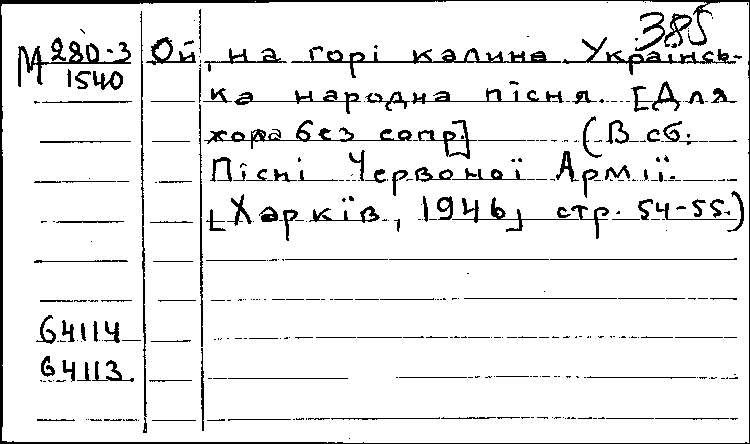 385
М 280-3
1540
Ой, на горі калина. Українсь-
ка народна пісня. [Для
хора без сопр.] (В сб:
Пісні Червоної Армії.
[Харків, 1946] стр. 54-55.)
64114
64113.